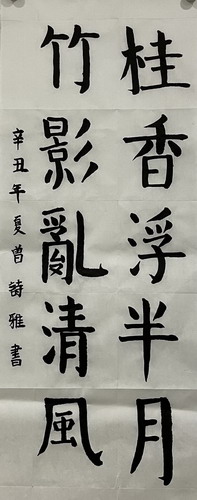 桂香浮半月
竹影亂清風
辛丑年夏曾詩雅書